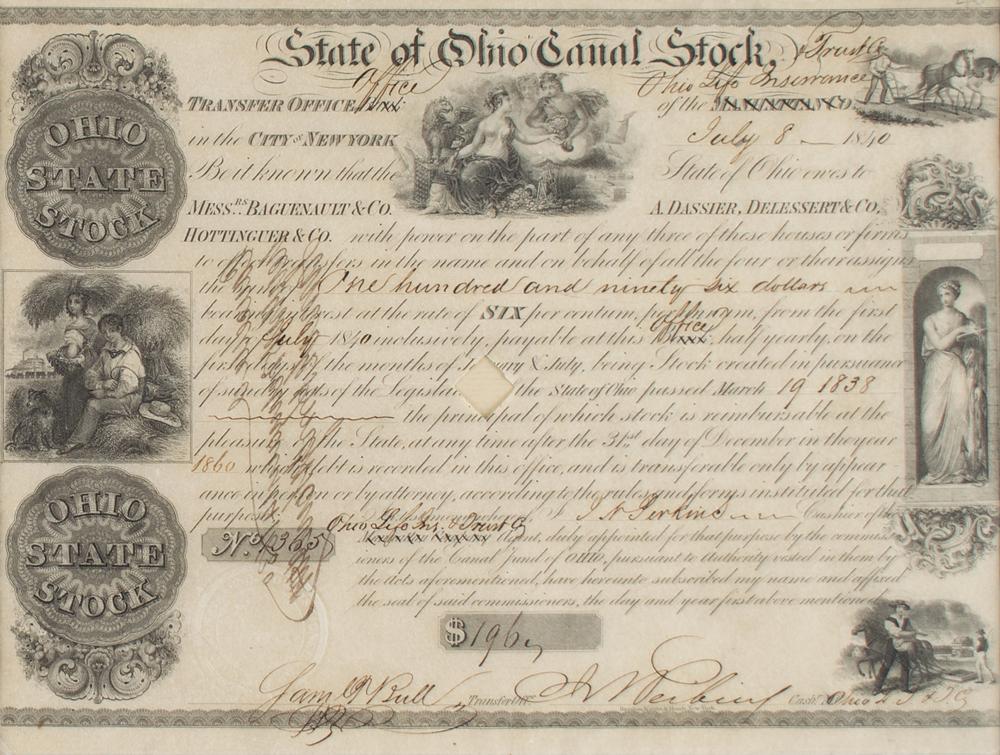 State of Ohio Canal Stock.
& Trust Co
Office
Ohio Life Insurance
TRANSFER OFFICE,
of the MANHATTAN CO.
in the CITY OF NEW YORK
July 8 — 1840
Be it known that the
State of Ohio owes to
MESS.RS BAGUENAULT & CO.
A. DASSIER, DELESSERT & CO.
HOTTINGUER & CO. with power on the part of any three of these houses or firms
to effect transfers in the name and on behalf of all the four or their assigns
the sum of One hundred and ninety six dollars
bearing interest at the rate of SIX per centum, per annum, from the first
Office
day of July 1840 inclusively, payable at this half yearly, on the
first days of the months of January & July, being Stock created in pursuance
of sundry acts of the Legislature of the State of Ohio passed March 19 1838
the principal of which stock is reimbursable at the
pleasure of the State, at any time after the 31st day of December in the year
1860 which debt is recorded in this office, and is transferable only by appear
ance in person or by attorney, according to the rules and forms instituted for that
purpose. In testimony whereof, I J N Perkins Cashier of the
Ohio Life Ins. & Trust Co
Agent, duly appointed for that purpose by the commiss
No. 4365
ioners of the Canal Fund of OHIO, pursuant to Authority vested in them by
the Acts aforementioned, have hereunto subscribed my name and affixed
the seal of said commissioners, the day and year first above mentioned
$196
Saml P Bull Transfer Offr. J N Perkins Cashr. Ohio L I & T Co
OHIO
STATE
STOCK
OHIO
STATE
STOCK